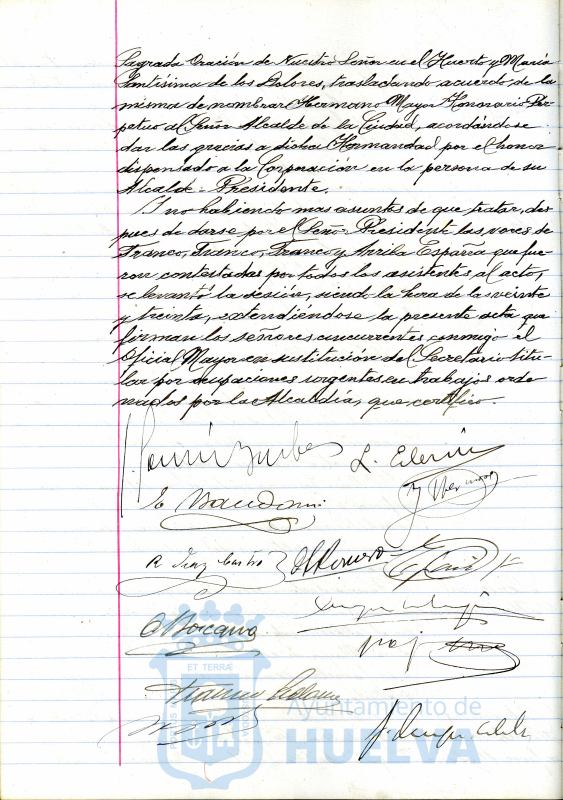 Sagrada Oración de Nuestro Señor en el Huerto y María
Santisima de los Dolores, trasladando acuerdo de la
misma de nombrar Hermano Mayor Honorario Per-
petuo al Señor Alcalde de la Ciudad, acordándose
dar las gracias a dicha Hermandad por el honor
dispensado a la Corporación en la persona de su
Alcalde-Presidente.
Y no habiendo mas asuntos de que tratar, des
pues de darse por el Señor Presidente las voces de
Franco, Franco, Franco y Arriba España que fue-
ron contestadas por todos los asistentes al acto,
se levantó la sesión, siendo la hora de las veinte
y treinta, extendiéndose la presente acta que
firman los señores concurrentes conmigo el
Oficial Mayor en sustitución del Secretario titu-
lar por ocupaciones urgentes en trabajos orde
nados por la Alcaldía, que certifico.
R Diaz Castro
ET TERRÆ
Ayuntamiento de
HUELVA